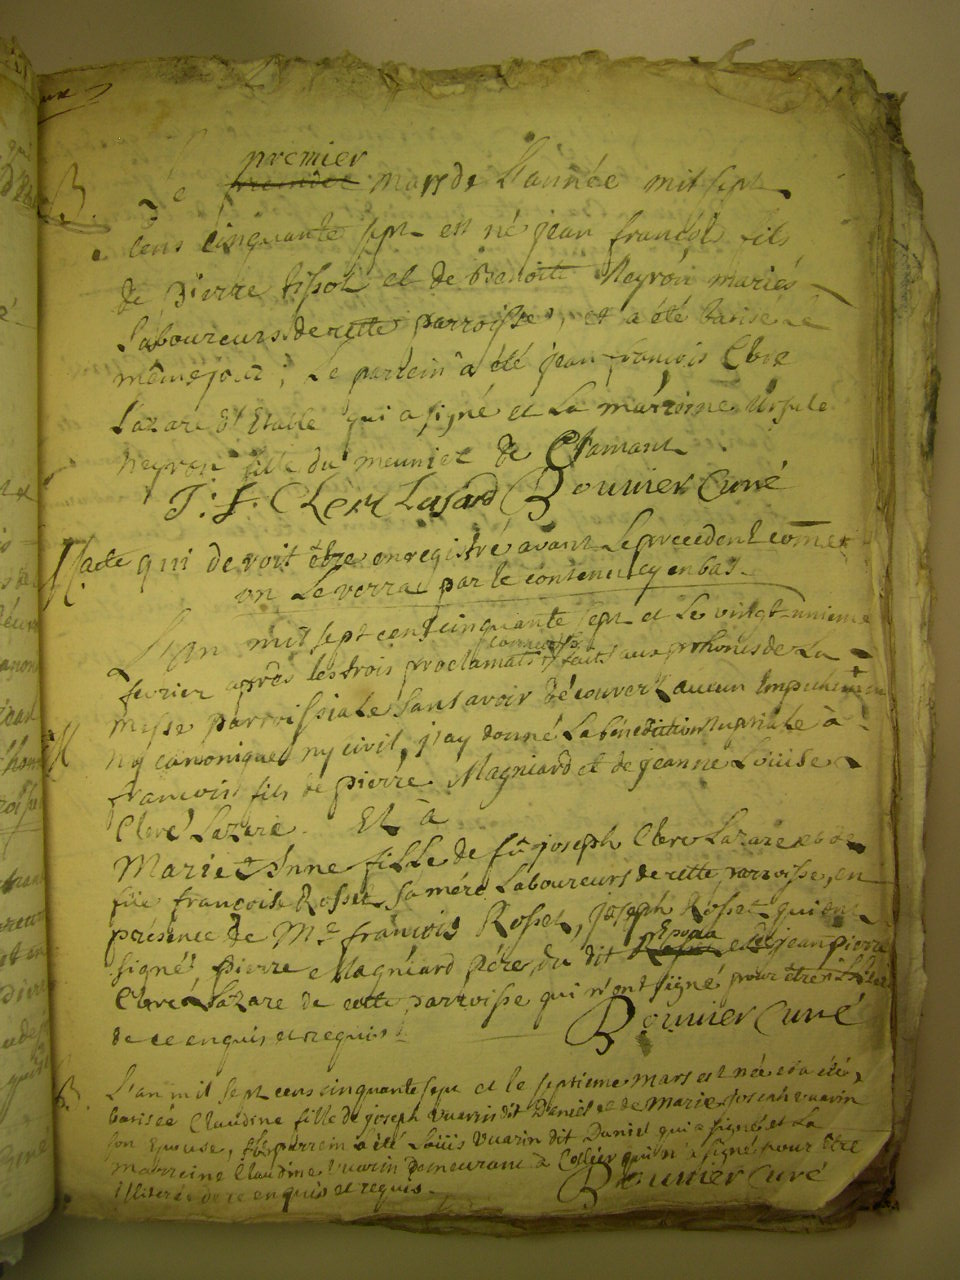 B. Le premier mars de L'année mil sept
cens cinquante sept est né jean françois fils
de Pierre tissot et de Benoite Neyron mariés
Laboureurs de cette parroisse, et a été batisé Le
même jour; Le parrein a été jean françois Clerc
Lazare d' Etable qui a signé et La marreine Ursule
neyron fille du meunier de Clamant
J: f. Clerc Lasard Bouvier Curé
acte qui devoit être enregistré avant Le precedent comme
on Le verra par le contenu cy en bas.
L'an mil sept cens cinquante sept et Le vingt unieme
fevrier après les trois proclamats faits aux prhones de La
M messe parroissiale sans avoir découvert aucun Impechement
ny canonique ny civil, j'ay donné La bénédiction nuptiale à
françois fils de pierre Magniard et de jeanne Loüise
Clerc Lazare. Et à
Marie Anne fille de fû joseph Clerc Lazare et de
françoise Rosset sa mére Laboureurs de cette parroisse, en
présence de Me françois Rosset, joseph Rosset qui ont
signé, pierre Magniard pére du dit Epoux et de jean pierre
Clerc Lazare de cette parroisse qui n'ont signé pour être illiteres
de ce enquis et requis. Bouvier Curé
B. L'an mil sept cens cinquante sept et le septieme mars est née et a été
batisée Claudine fille de joseph vuarin dit Daniel et de Marie joseph vuarin
son Epouse, Le parrein a été Loüis Vuarin dit Daniel qui a signé et La
marreine Claudine Vuarin Demeurant à qui n'a signé pour être
illiterée de ce enquis et requis. Bouvier Curé